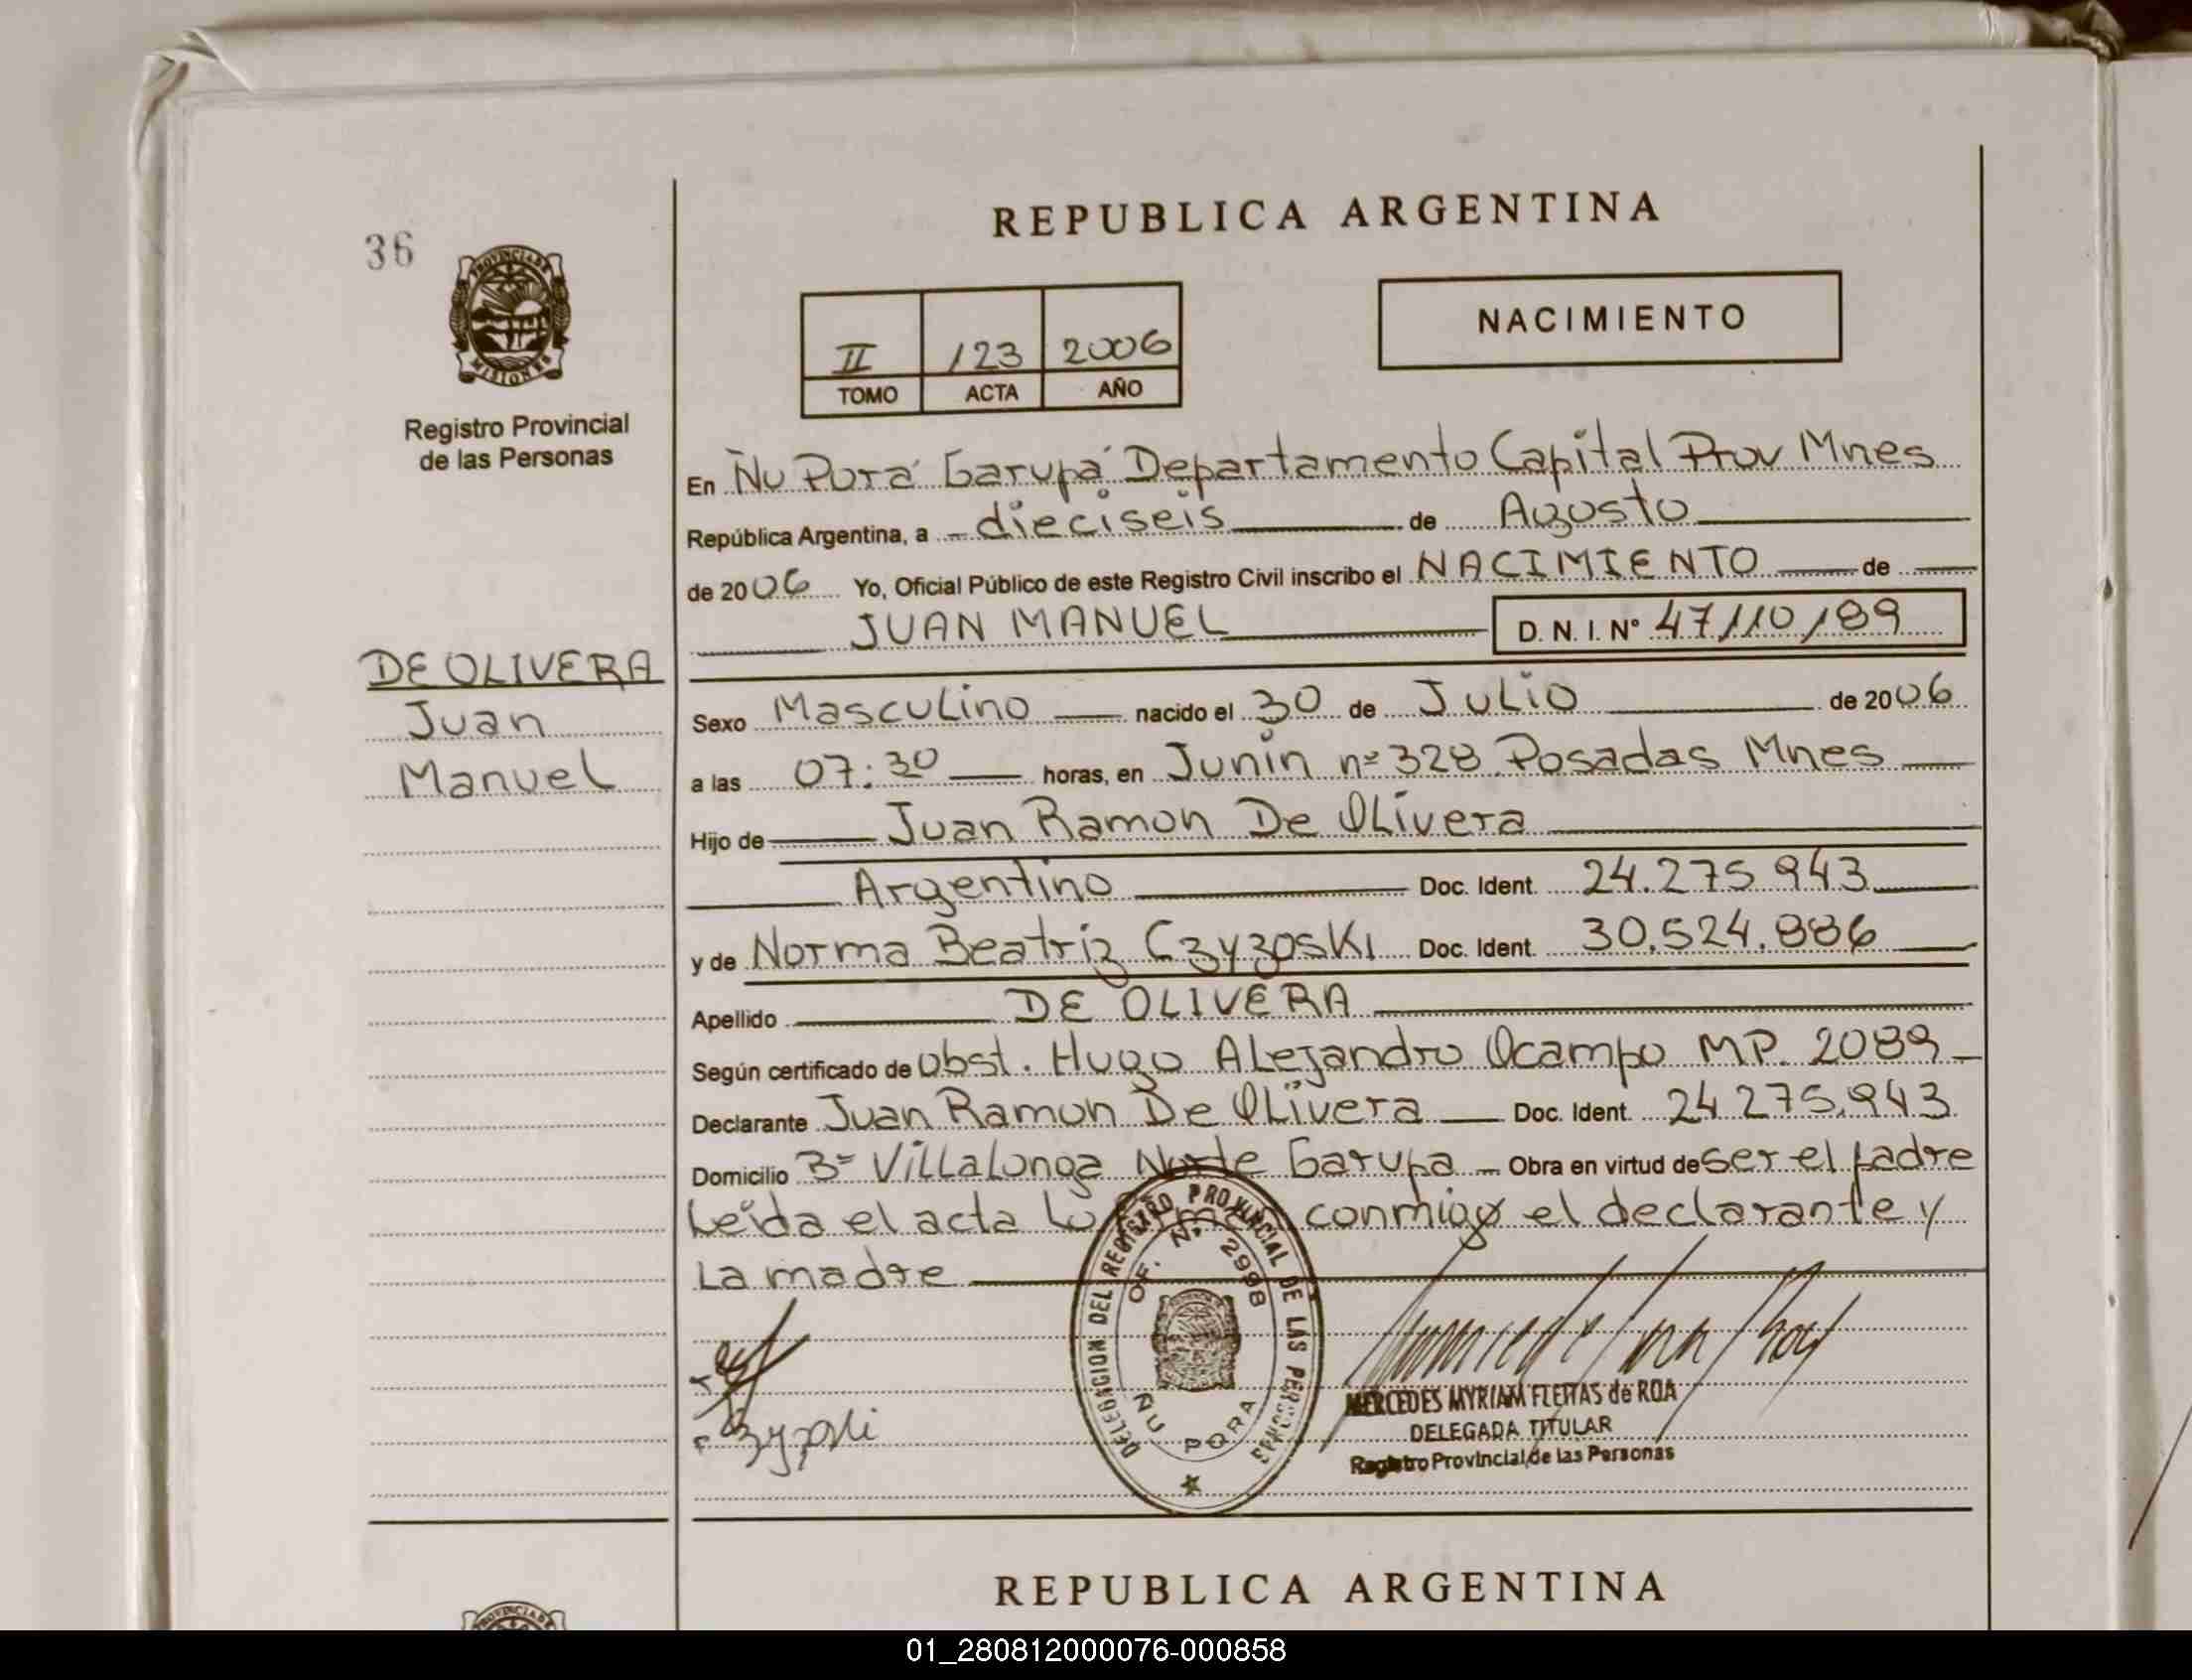 36
PROVINCIA DE
MISIONES
Registro Provincial
de las Personas
DE OLIVERA
Juan
Manuel
REPUBLICA ARGENTINA
II 123 2006
TOMO ACTA AÑO
NACIMIENTO
En Ñu Porá Garupá Departamento Capital Prov Mnes
República Argentina, a dieciseis de Agosto
de 2006 Yo, Oficial Público de este Registro Civil inscribo el NACIMIENTO de
JUAN MANUEL D. N. I. Nº 47110189
Sexo Masculino nacido el 30 de Julio de 2006
a las 07:30 horas, en Junin nº 328 Posadas Mnes
Hijo de Juan Ramon De Olivera
Argentino Doc. Ident. 24.275.943
y de Norma Beatriz Czyzoski Doc. Ident. 30.524.886
Apellido DE OLIVERA
Según certificado de Obst. Hugo Alejandro Ocampo MP. 2089
Declarante Juan Ramon De Olivera Doc. Ident. 24.275.943
Domicilio Bº Villalonga Norte Garupa Obra en virtud de ser el padre
Leida el acta lo conmigo el declarante y
La madre
DELEGACION DEL REGISTRO PROVINCIAL DE LAS PERSONAS
OF. Nº 2998
ÑU PORA
MERCEDES MYRIAM FLEITAS de ROA
DELEGADA TITULAR
Registro Provincial de las Personas
REPUBLICA ARGENTINA
PROVINCIA DE
01_280812000076-000858